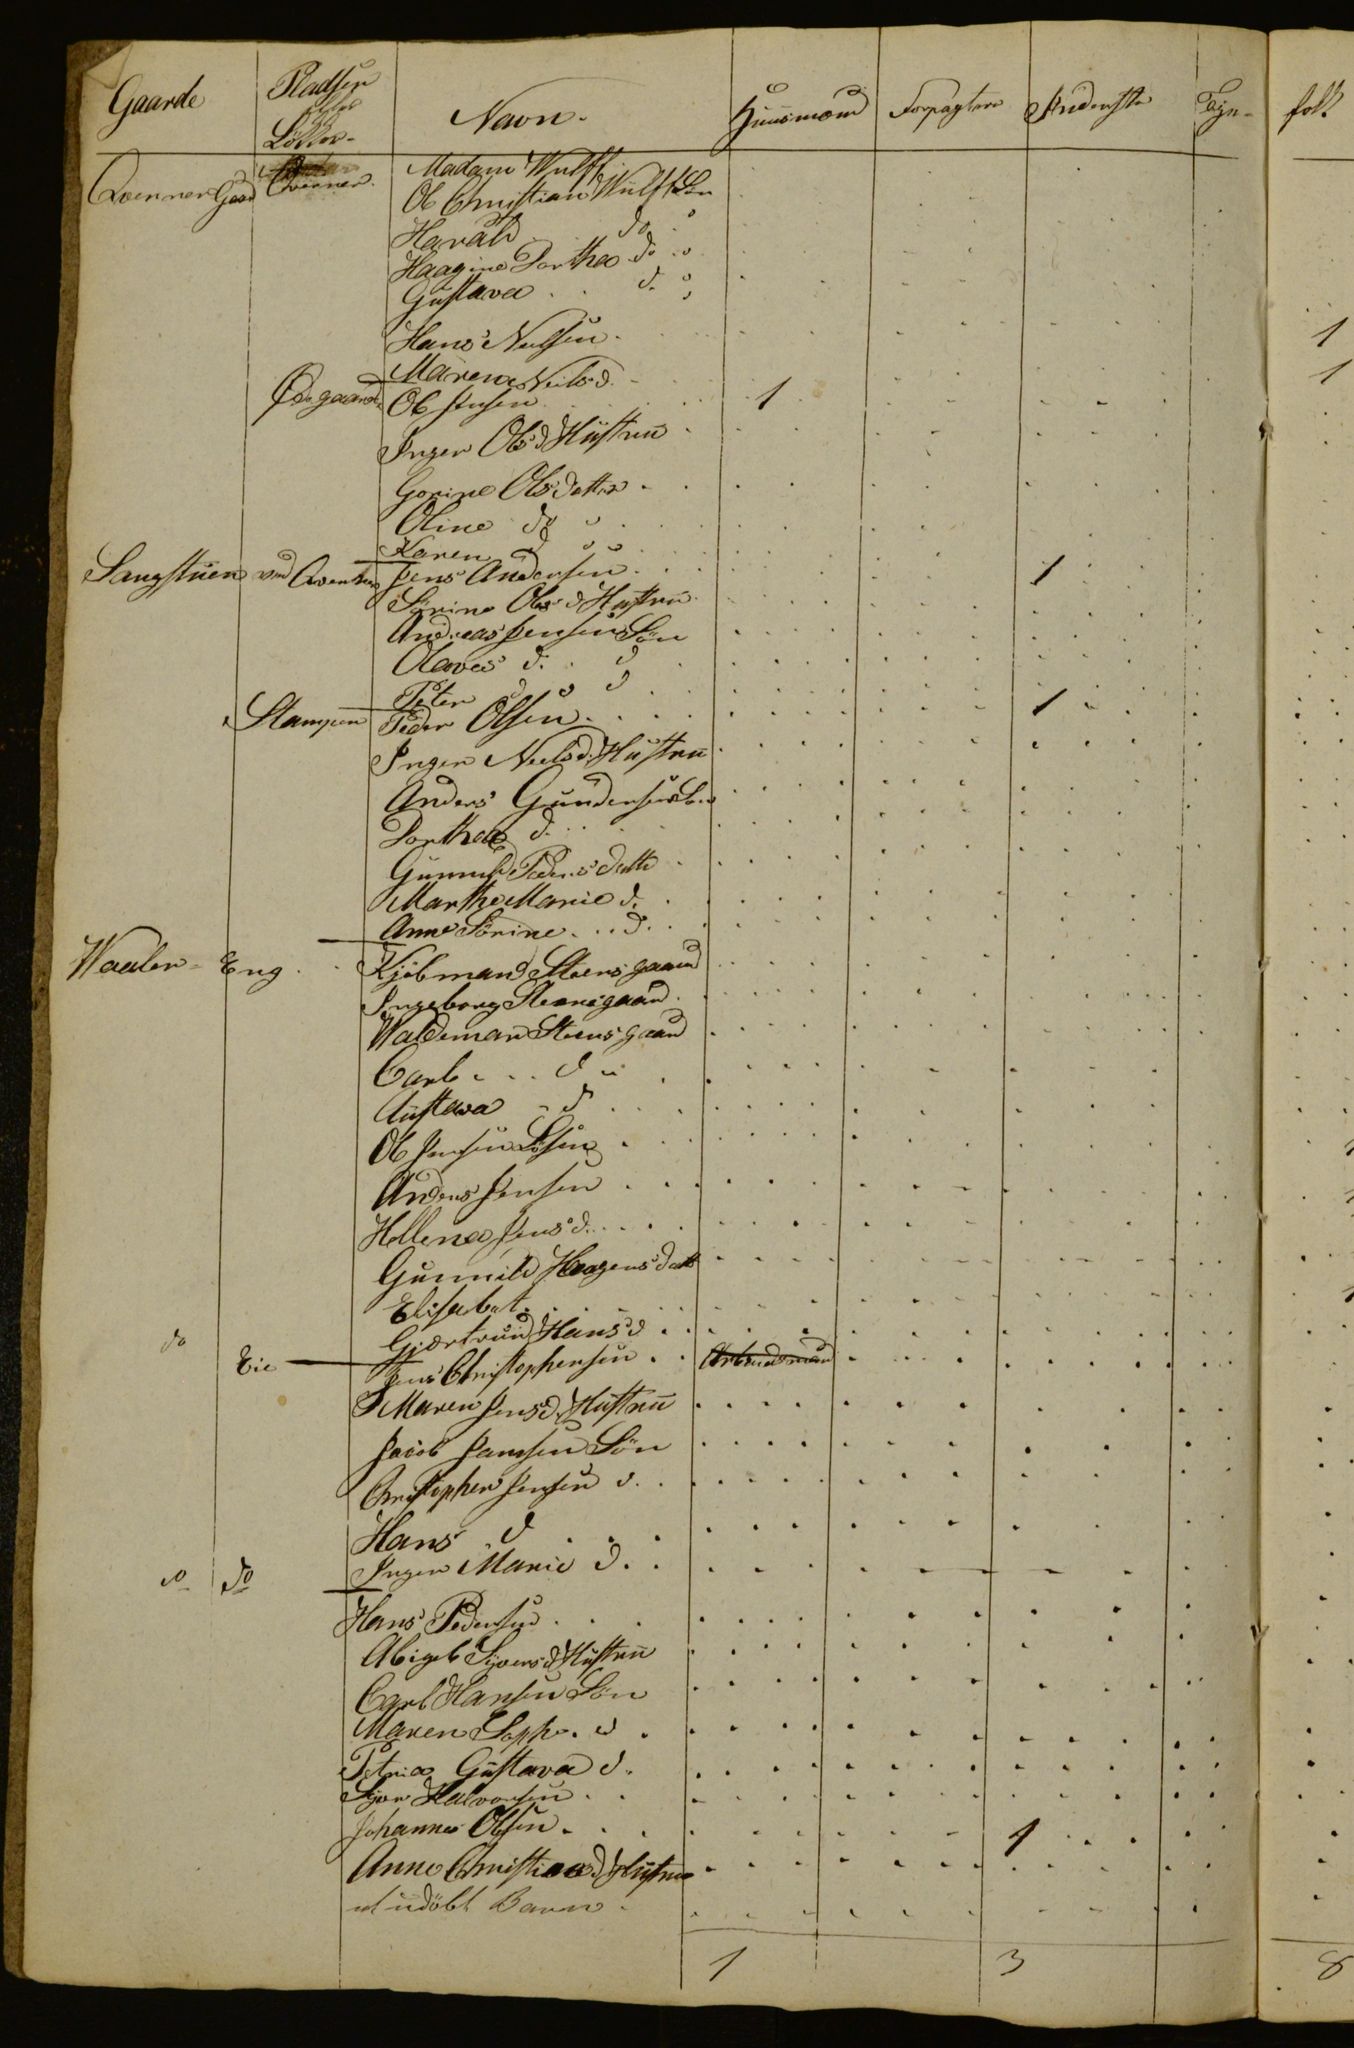 Gaarde Pladser Navn. Huusmænd Forpagtere Inderster Tjen- folk
eller
Løkker-
Qverner Gaard Qverner. Madam Wulff
Ole Christian Wulff Søn
Harald do
Haagine Dorthea do
Gustava d.
Hans Nielsen
Maren Nielsd.
Ødegaard Ole Jensen 1
Inger Olsd Hustrue
Gorine Olsdatter
Oline do
Karen d
Langstuen ved Qvernen Jens Andersen 1
Sørine Olsd Hustrue
Andreas Jensen Søn
Olaves d. d
Peter d d
Stampen Peder Olsen 1
Inger Nielsd. Hustrue
Anders Gundersen
Dorthea d.
Gunnild Peders datter
Marthe Marie d.
Anne Sørine d.
Waaler- Eng Kjøbmand Steensgaard
Ingeborg Steensgaard
Waldemar Steensgaard
Carl d
Gustava d
Ole Jensen
Anders Jensen
Hellena Jensd.
Gunnild Haagensdatt
Elisabet
Gjærtrud Hansd
do Eie Jens Christophersen Arbeidsmand
Maren Jensd. Hustrue
Jacob Jensen Søn
Christopher Jensen d.
Hans d
Inger Marie d.
do do
Hans Pedersen
Abigel Sjversd Hustrue
Carl Hansen Søn
Maren Soph. d
Petrica Gustava d.
Halvorsen
Johannes Olsen 1
Anne Christiansd Hustrue
et udøbt Barn
1 3 8